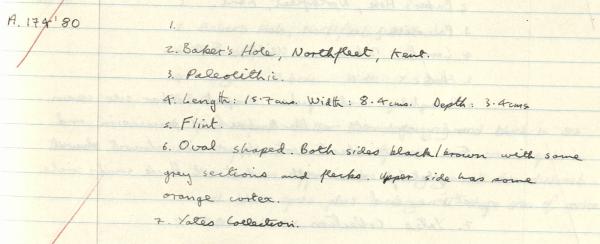 A. 174'80 1.
2. Baker's Hole, Northfleet, Kent.
3. Paleolithic.
4. Length: 15.7cms. Width: 8.4cms. Depth: 3.4cms
5. Flint.
6. Oval shaped. Both sides black/brown with some
grey sections and flecks. Upper side has some
orange cortex.
7. Yates Collection.